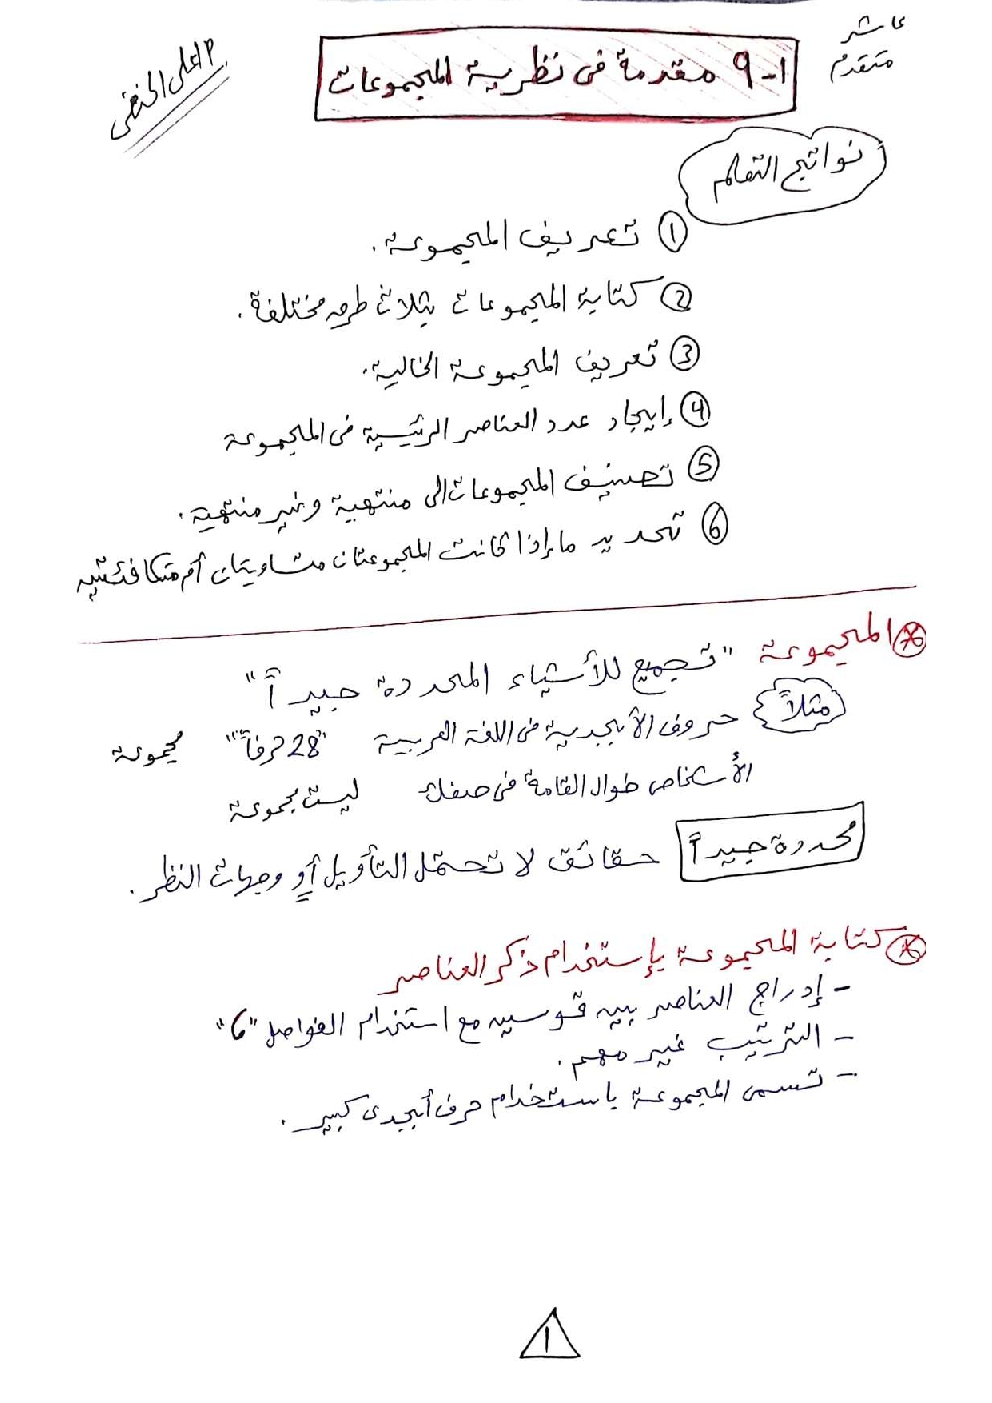 عاشر
متقدم
9-1 مقدمة فى نظرية المجموعات
م/على الحنفى
نواتج التعلم
① تعريف المجموعة.
② كتابة المجموعات بثلاث طرق مختلفة.
③ تعريف المجموعة الخالية.
④ إيجاد عدد العناصر الرئيسية فى المجموعة
⑤ تصنيف المجموعات الى منتهية وغير منتهية.
⑥ تحديد ما إذا كانت المجموعتان متساويتان أم متكافئتين
* المجموعة "تجميع للأشياء المحددة جيداً"
مثلاً حروف الأبجدية فى اللغة العربية "28 حرفاً" مجموعة
الأشخاص طوال القامة فى صفك ليست مجموعة
محددة جيداً حقائق لا تحتمل التأويل أو وجهات النظر.
* كتابة المجموعة بإستخدام ذكر العناصر
- إدراج العناصر بين قوسين مع استخدام الفواصل "،"
- الترتيب غير مهم.
- تسمى المجموعة باستخدام حرف أبجدى كبير.
1